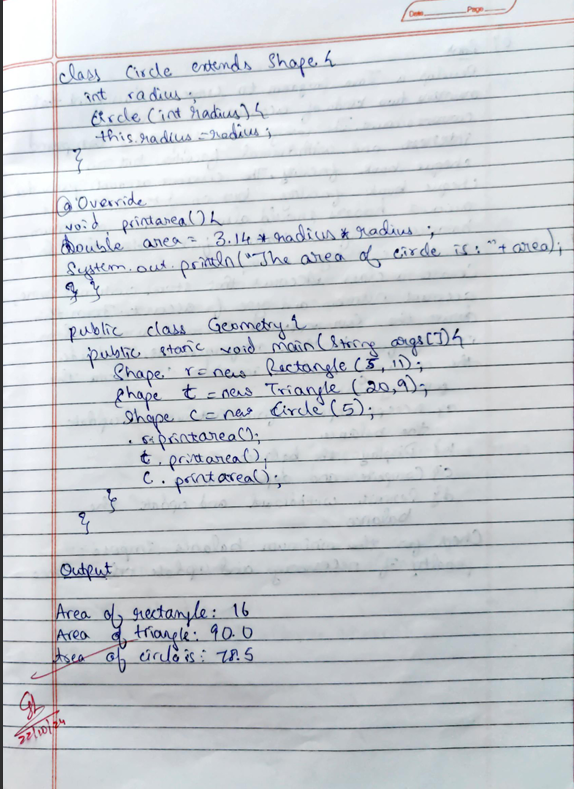 Date Page
class Circle extends Shape {
int radius;
Circle (int radius) {
this.radius = radius;
}
@Override
void printarea() {
Double area = 3.14 * radius * radius ;
System.out.println("The area of circle is : "+ area);
} }
public class Geometry {
public static void main (String args[]) {
Shape r = new Rectangle (5, 11);
Shape t = new Triangle (20,9);
Shape c = new Circle (5);
r.printarea();
t. printarea();
C. printarea();
}
}
Output
Area of rectangle: 16
Area of triangle: 90.0
Area of circle is: 78.5
22/10/24